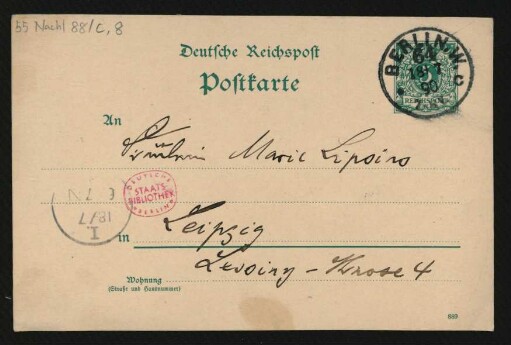 55 Nachl 88/C, 8
Deutsche Reichspost
Postkarte
BERLIN. W.
64
18 7
90
C
REICHSPOST
An
Fräulein Marie Lipsius
DEUTSCHE
STAATS-
BIBLIOTHEK
BERLIN
I
18/7
in Leipzig
Wohnung
(Straße und Hausnummer)
Strasse 4
689